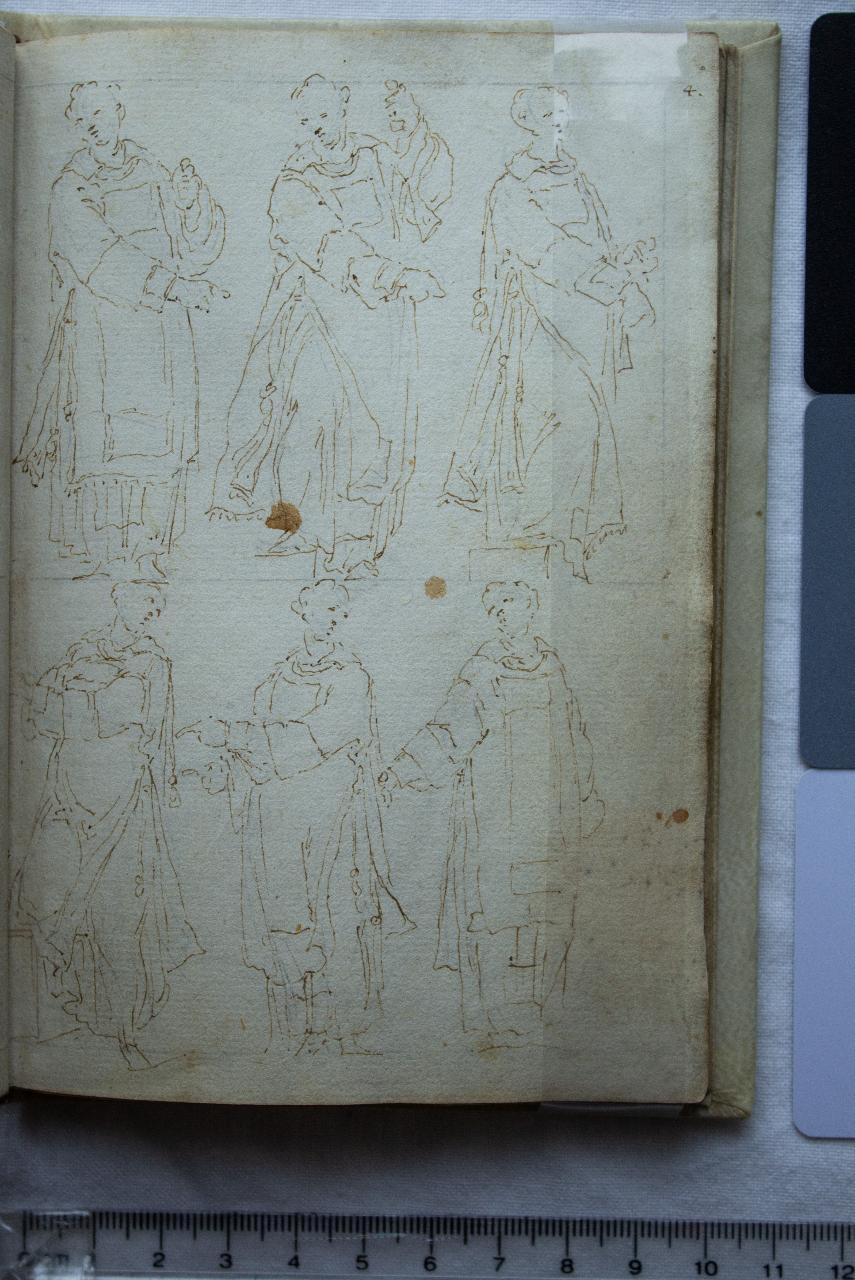 4.
cm 2 3 4 5 6 7 8 9 10 11 12